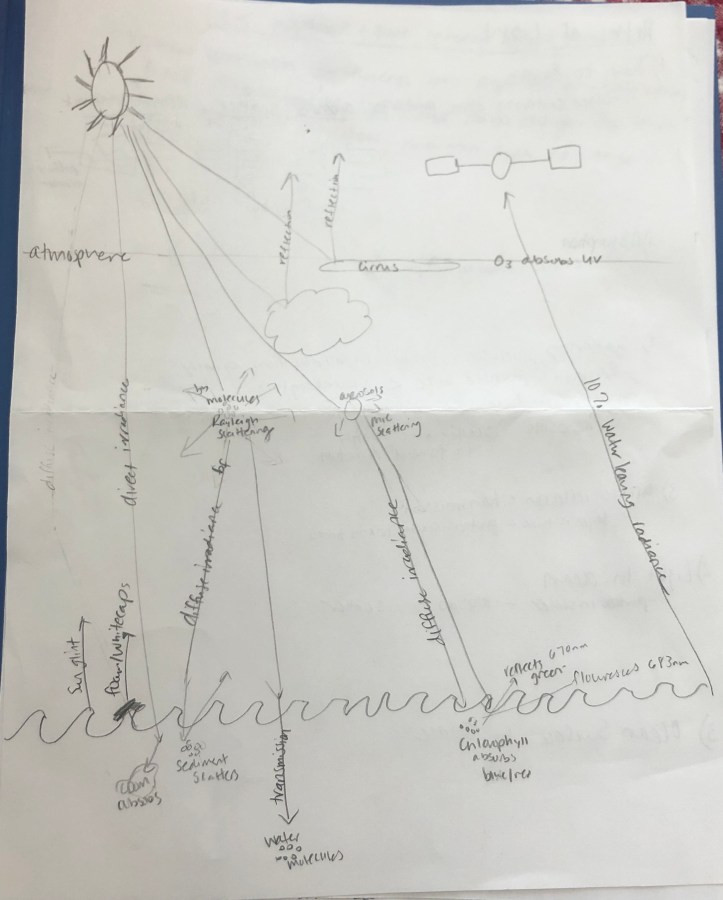 reflection
reflection
atmosphere
cirrus
O3 absorbs UV
molecules
Rayleigh
scattering
aerosols
mie
scattering
10% water leaving radiance
diffuse
direct irradiance
diffuse irradiance
diffuse irradiance
sun glint
foam/whitecaps
reflects 670nm
green
flouresces 683nm
sediment
scatters
absorbs
transmission
chlorophyll
absorbs
blue/red
water
molecules